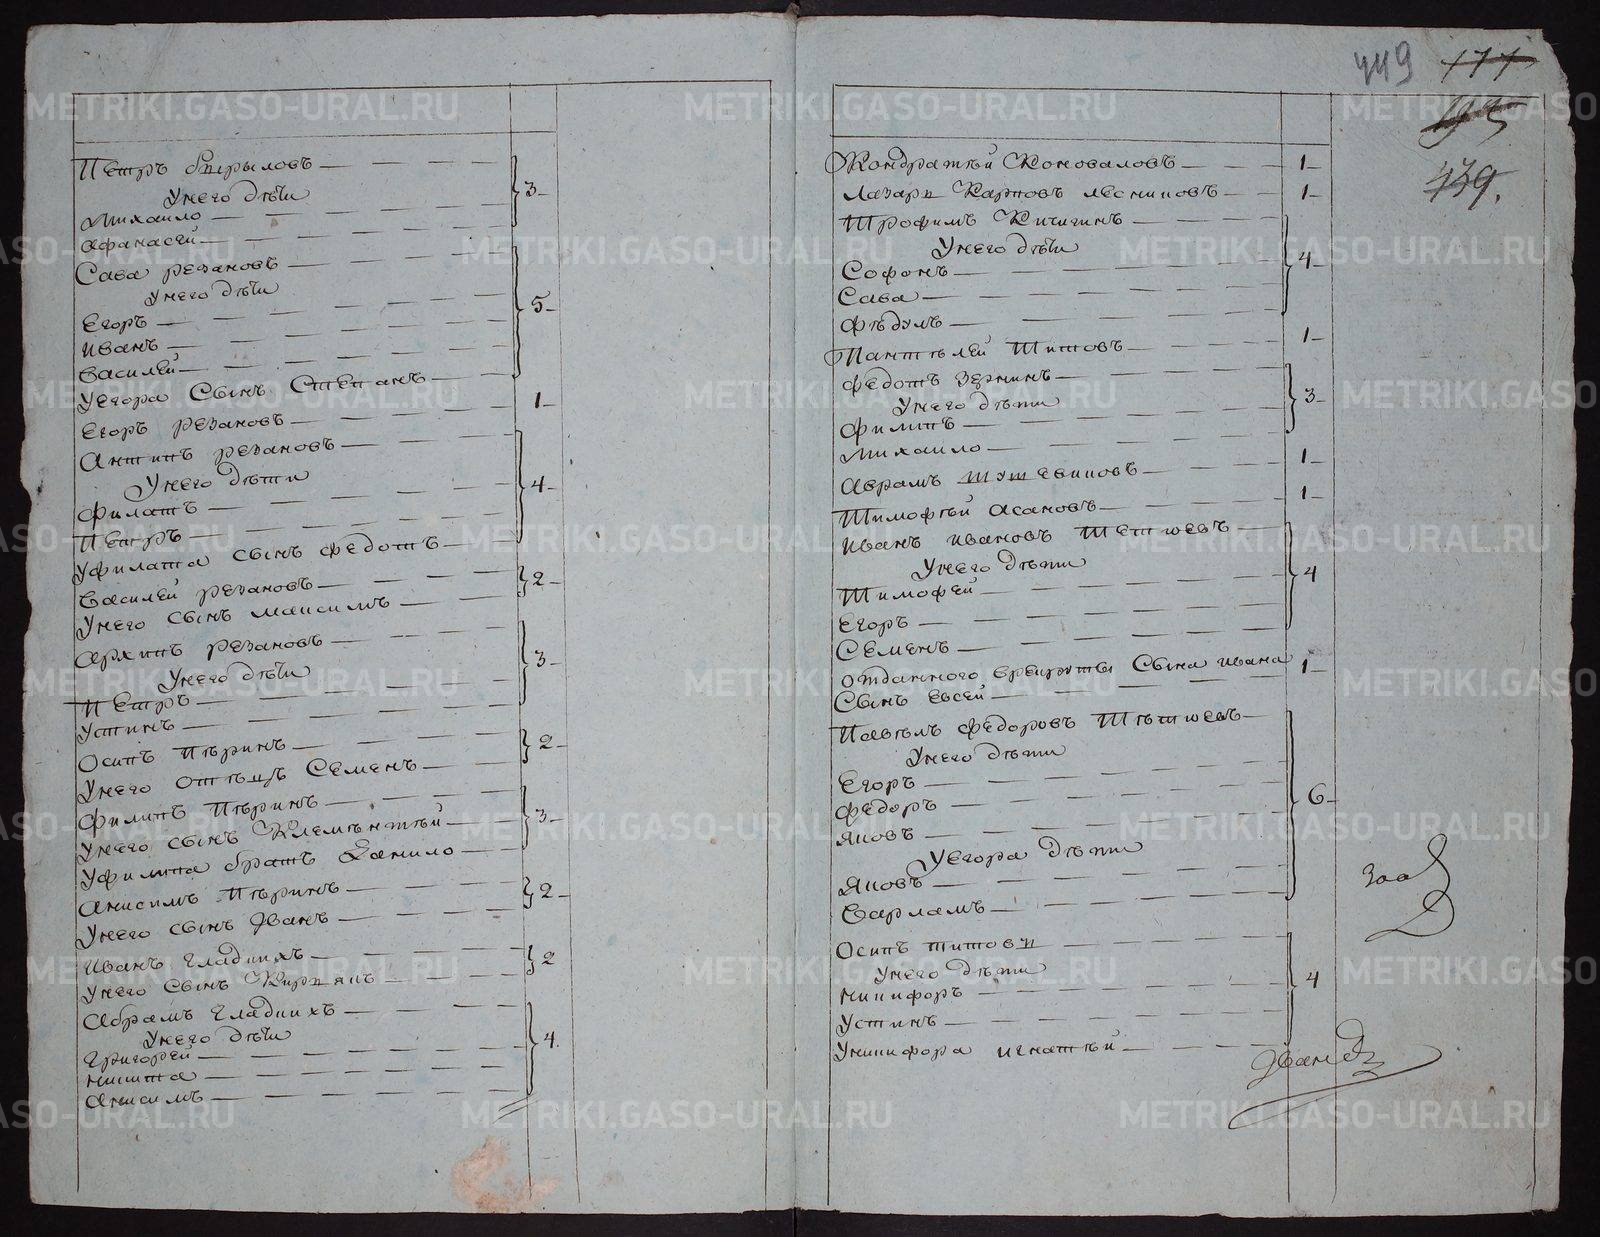 Петръ Бирыловъ
Унего дѣти
Михаило
Афанасей
3
Сава резановъ
Унего дѣти
Егоръ
Иванъ
Василей
5
Уегора Сынъ Степанъ
Егоръ резановъ
1
Антипъ резановъ
Унего дѣти
Филатъ
Петръ
4
Уфилата сынъ Федотъ
Василей резановъ
Унего сынъ максимъ
2
Архипъ резановъ
Унего дѣти
Петръ
Устинъ
3
Осипъ Пѣринъ
Унего отѣцъ Семенъ
2
Филипъ Пѣринъ
Унего сынъ Клемѣнтѣй
Уфилипа братъ Данило
3
Анисимъ Пѣринъ
Унего сынъ Иванъ
2
Иванъ гладкихъ
Унего сынъ Кирпянъ
2
Абрамъ гладкихъ
Унего дѣти
Григорей
Никита
Анисимъ
4
449
171
195
439
Кондратѣй Коноваловъ 1
Лазарь Карповъ лесниковъ 1
Трофимъ Кичигинъ
Унего дѣти
Софонъ
Сава
Фѣдулъ
4
Пантѣлей Титовъ 1
Федотъ Зернинъ
Унего дѣти
Филипъ
Михаило
3
Аврамъ 1
Тимофѣй Асановъ 1
Иванъ Ивановъ Тетюевъ
Унего дѣти
Тимофей
Егоръ
Семенъ
4
отданного врекруты Сына ивана
Сынъ Евсей
1
Павѣлъ Федоровъ Тѣтюевъ
Унего дѣти
Егоръ
Федоръ
Яковъ
Уегора дѣти
Яковъ
Варламъ
6
Осипъ титовъ
Унего дѣти
Никифоръ
Устинъ
Уникифора игнатѣй
4
METRIKI.GASO-URAL.RU